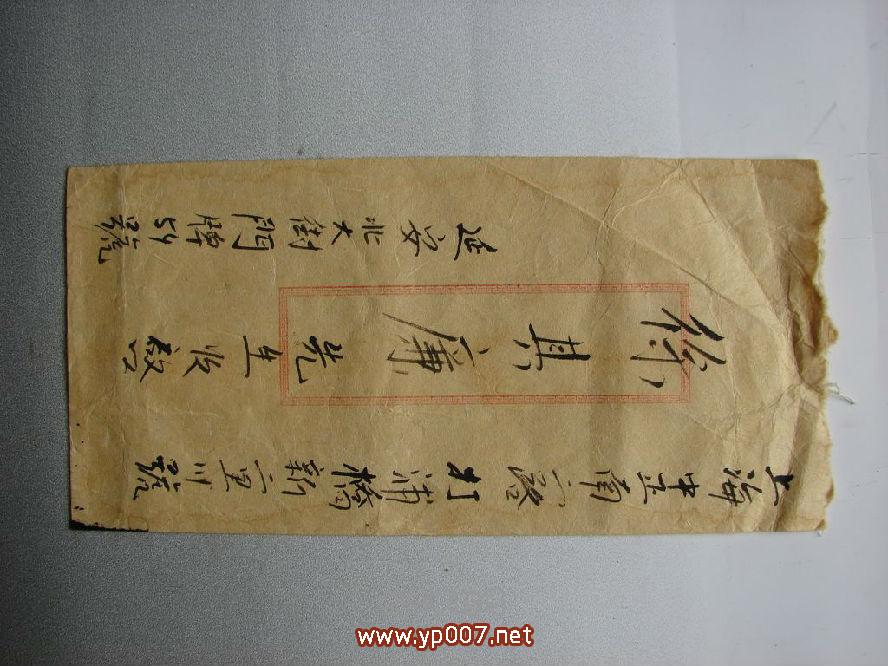 上海中正南二路打浦橋新里號
徐其廉先生收啟
延安北大街門牌號
www.yp007.net